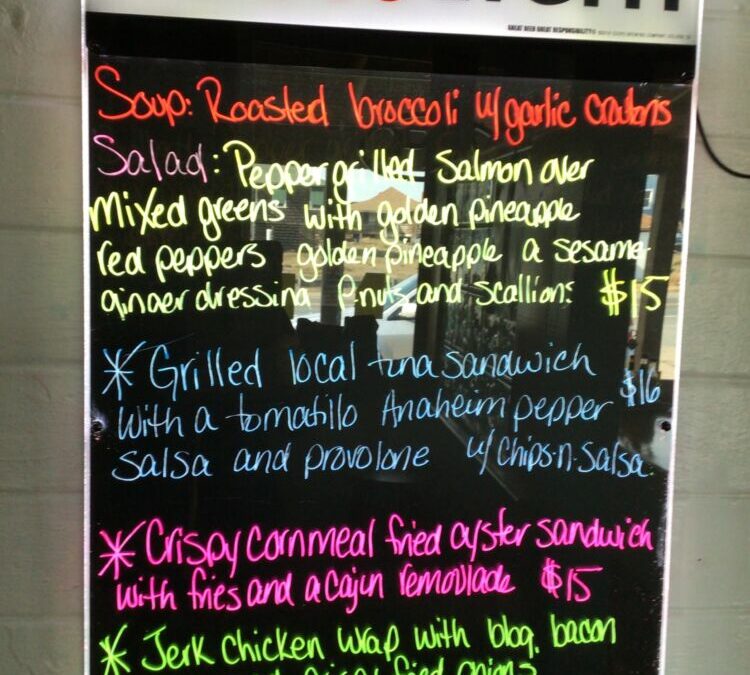 GREAT BEER GREAT RESPONSIBILITY®
Soup: Roasted broccoli w/garlic croutons
Salad: Pepper grilled Salmon over
mixed greens with golden pineapple
red peppers golden pineapple a sesame
ginger dressing P-nuts and scallions $15
* Grilled local tuna sandwich
with a tomatillo Anaheim pepper $16
salsa and provolone w/ chips-n-salsa
* Crispy cornmeal fried oyster sandwich
with fries and a cajun remoulade $15
* Jerk chicken wrap with bbq. bacon
fried onions